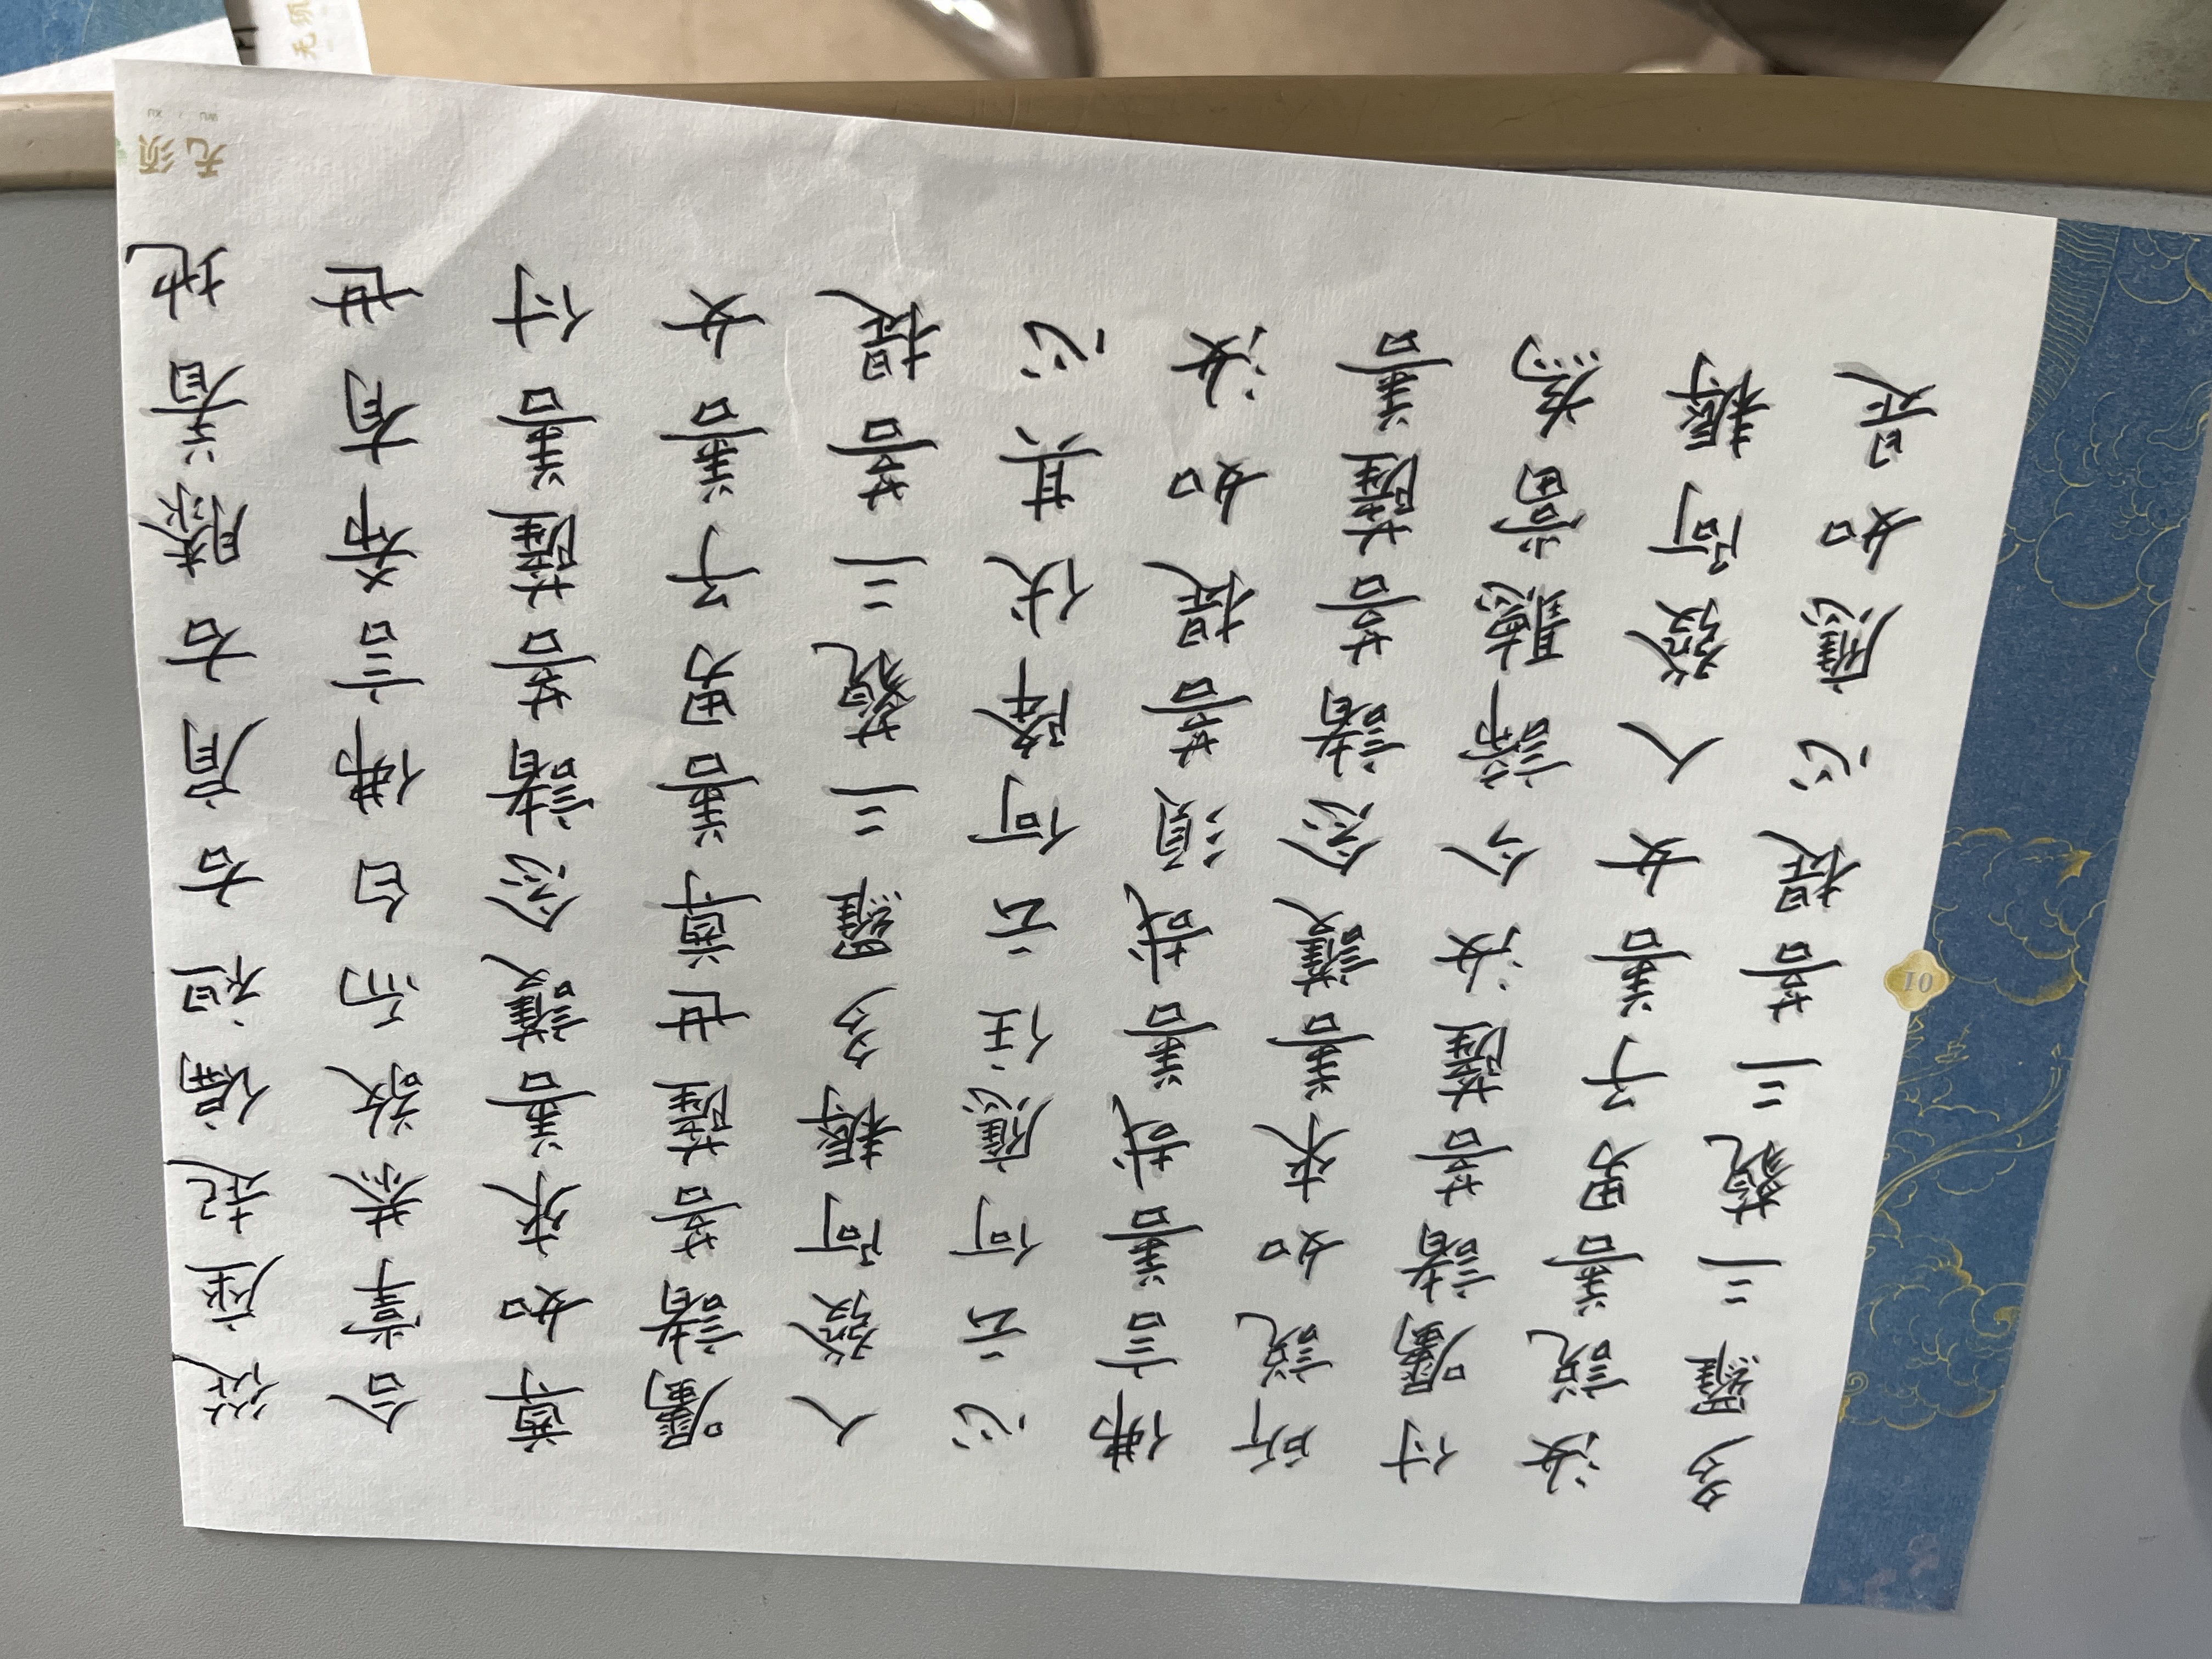 從座起偏袒右肩右膝着地
合掌恭敬而白佛言希有世
尊如来善護念諸菩薩善付
囑諸菩薩世尊善男子善女
人發阿耨多羅三藐三菩提
心云何應住云何降伏其心
佛言善哉善哉須菩提如汝
所説如来善護念諸菩薩善
付囑諸菩薩汝今諦聽當為
汝説善男子善女人發阿耨
多羅三藐三菩提心應如是
01
无须
WU XU
无须